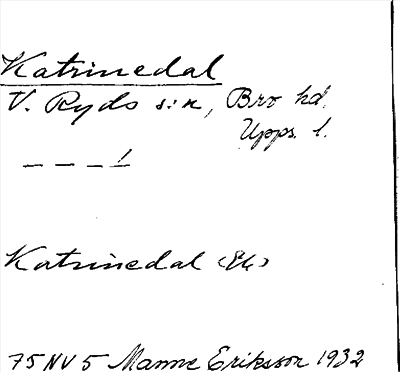 Katrinedal
V. Ryds s:n, Bro hd.
Upps. l.
— — — /
Katrinedal (Ek)
75 NV 5 Manne Eriksson 1932